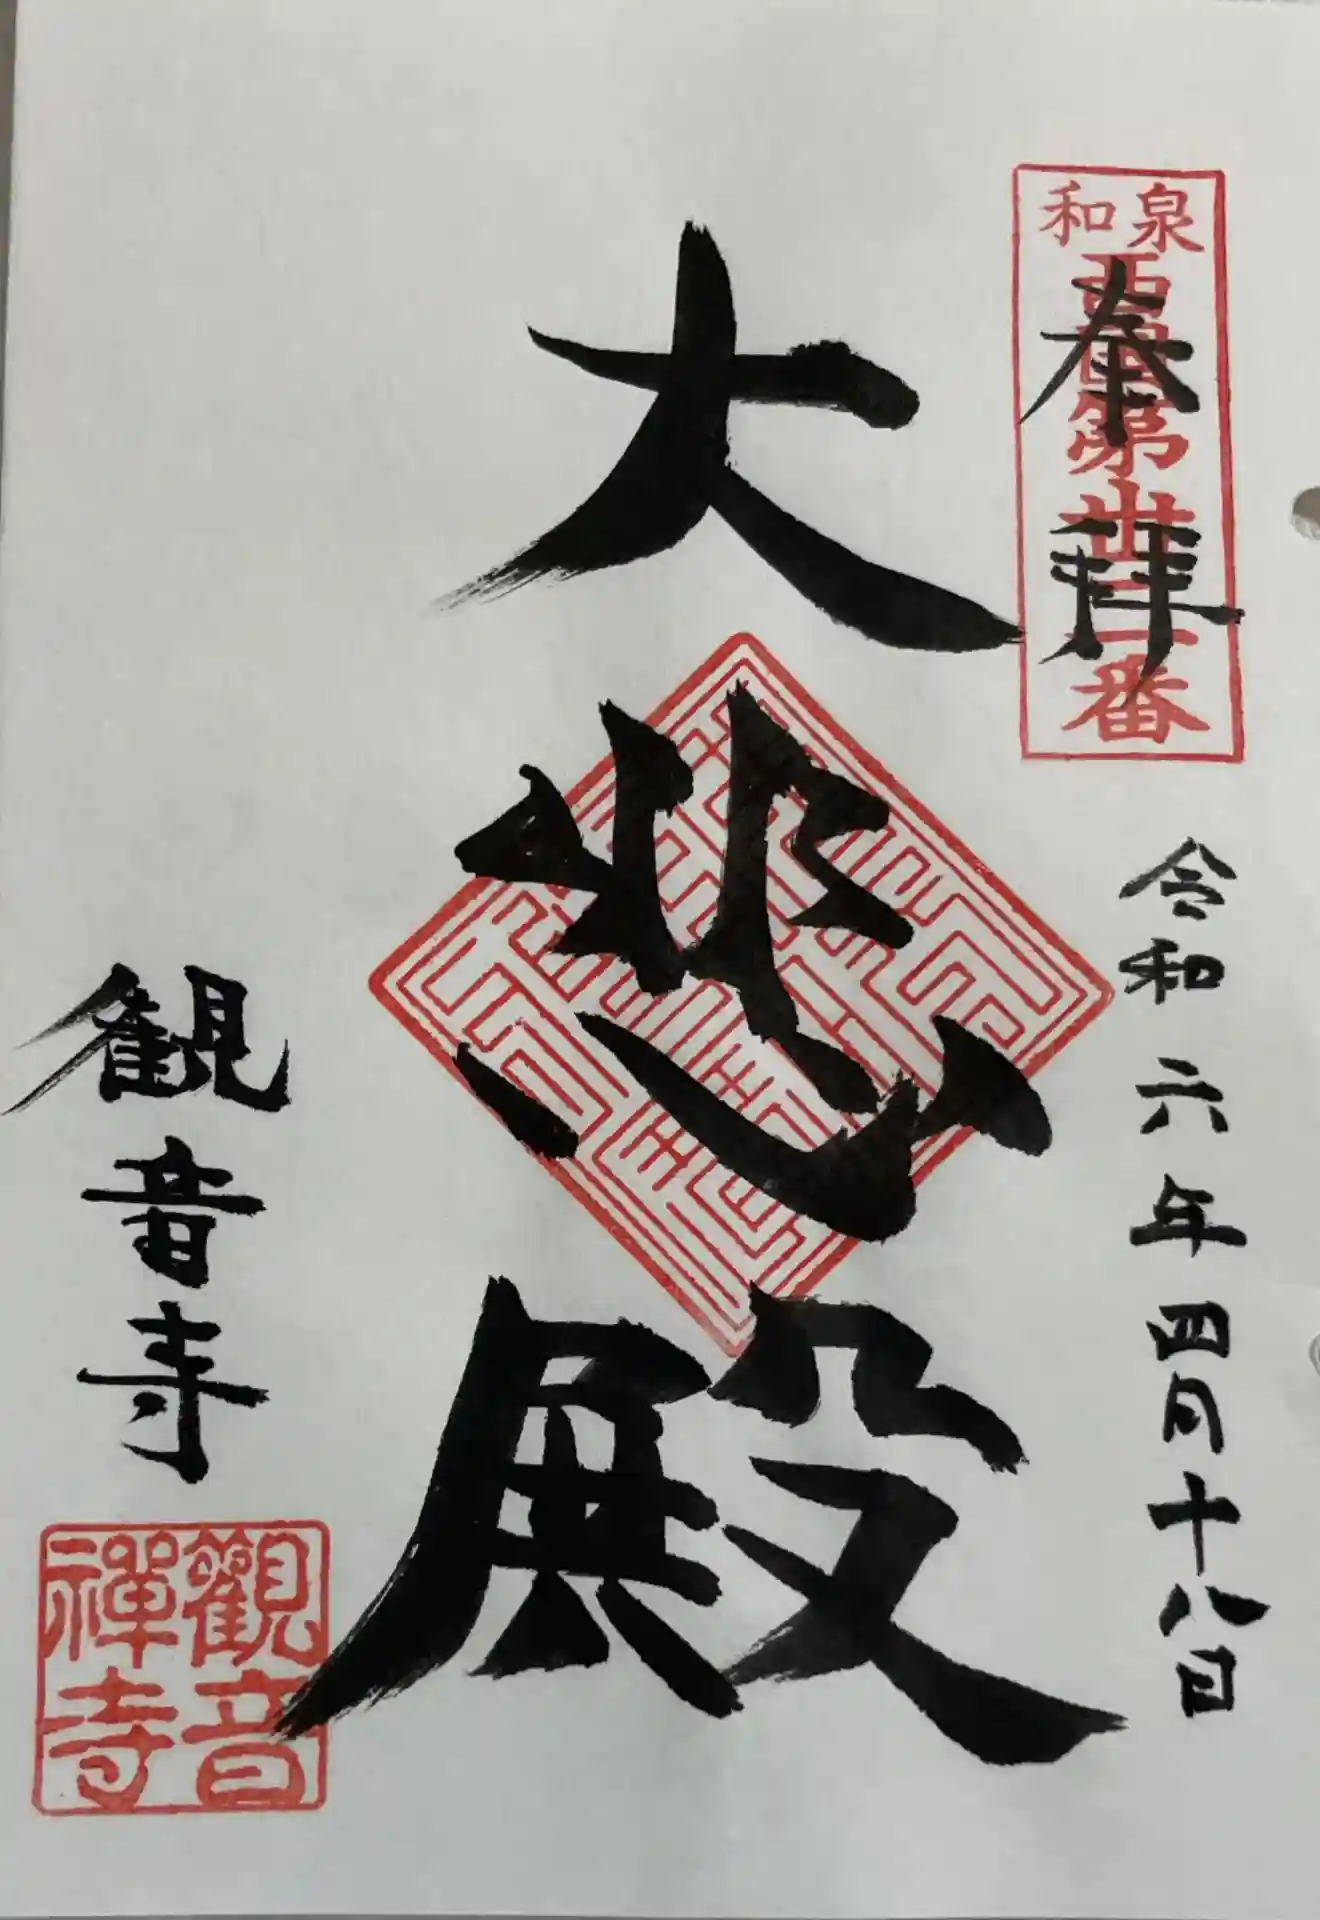 和泉
西国第丗二番
奉拝
令和六年四月十八日
大悲殿
観音寺
觀音
禪寺